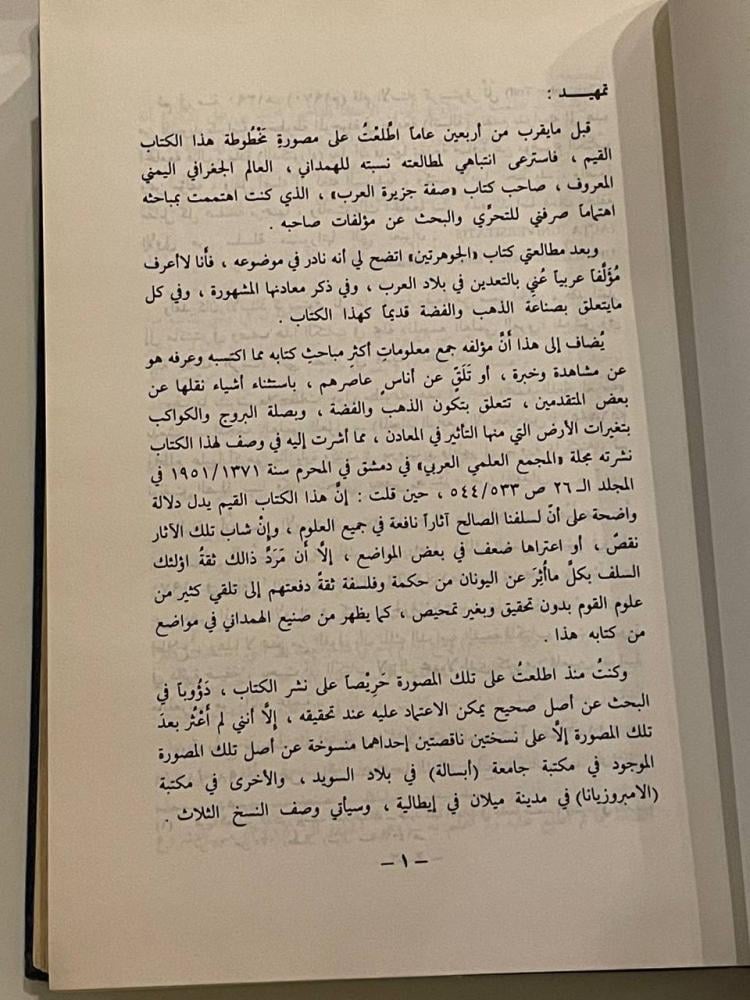 تمهيـــد :
قبل مايقرب من أربعين عاماً اطَّلَعْتُ على مصورةِ مَخْطُوطة هذا الكتاب
القيم ، فاسترعى انتباهي لمطالعته نسبته للهمداني ، العالم الجغرافي اليمني
المعروف ، صاحب كتاب «صفة جزيرة العرب» ، الذي كنت اهتممت بمباحثه
اهتماماً صرفني للتحرِّي والبحث عن مؤلفات صاحبه .
وبعد مطالعتي كتاب «الجوهرتين» اتضح لي أنه نادر في موضوعه ، فأنا لاأعرف
مُؤَلَّفاً عربياً عُني بالتعدين في بلاد العرب ، وفي ذكر معادنها المشهورة ، وفي كل
مايتعلق بصناعة الذهب والفضة قديماً كهذا الكتاب .
يُضاف إلى هذا أَنَّ مؤلفه جمع معلوماتِ أكثرِ مباحثِ كتابه مما اكتسبه وعرفه هو
عن مشاهدة وخبرة ، أو تَلَقٍّ عن أناسٍ عاصرهم ، باستثناء أشياء نقلها عن
بعض المتقدمين ، تتعلق بتكون الذهب والفضة ، وبصلة البروج والكواكب
بتغيرات الأرض التي منها التأثير في المعادن ، مما أشرت إليه في وصف لهذا الكتاب
نشرته مجلة «المجمع العلمي العربي» في دمشق في المحرم سنة ١٩٥١/١٣٧١ في
المجلد الـ ٢٦ ص ٥٤٤/٥٣٣ ، حين قلت : إنَّ هذا الكتاب القيم يدل دلالة
واضحة على أنّ لسلفنا الصالح آثاراً نافعة في جميع العلوم ، وإنْ شاب تلك الآثار
نقصٌ ، أو اعتراها ضعف في بعض المواضع ، إلَّا أن مَرَدَّ ذالك ثقةُ اؤلئك
السلف بكلِّ ماأُثِرَ عن اليونان من حكمة وفلسفة ثقةً دفعتهم إلى تلقي كثير من
علوم القوم بدون تحقيق وبغير تمحيص ، كما يظهر من صنيع الهمداني في مواضع
من كتابه هذا .
وكنتُ منذ اطلعتُ على تلك المصورة حَرِيْصاً على نشر الكتاب ، دَؤُوباً في
البحث عن أصل صحيح يمكن الاعتماد عليه عند تحقيقه ، إلَّا أنني لم أَعْثُر بعدَ
تلك المصورة إلَّا على نسختين ناقصتين إحداهما منسوخة عن أصل تلك المصورة
الموجود في مكتبة جامعة (أبسالة) في بلاد السويد ، والأخرى في مكتبة
(الامبروزيانا) في مدينة ميلان في إيطالية ، وسيأتي وصف النسخ الثلاث .
– ١ –